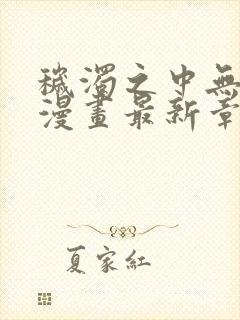 穢濁之中無
漫畫最新章
夏家紅